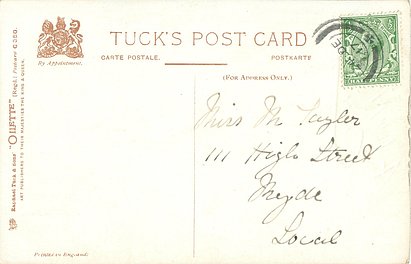 TUCK'S POST CARD
CARTE POSTALE.
POSTKARTE
By Appointment.
(FOR ADDRESS ONLY.)
RAPHAEL TUCK & SONS' "OILETTE" (Regd.) Postcard
ART PUBLISHERS TO THEIR MAJESTIES THE KING & QUEEN.
HALFPENNY
Miss M. Taylor
111 High Street
Local
Printed in England.